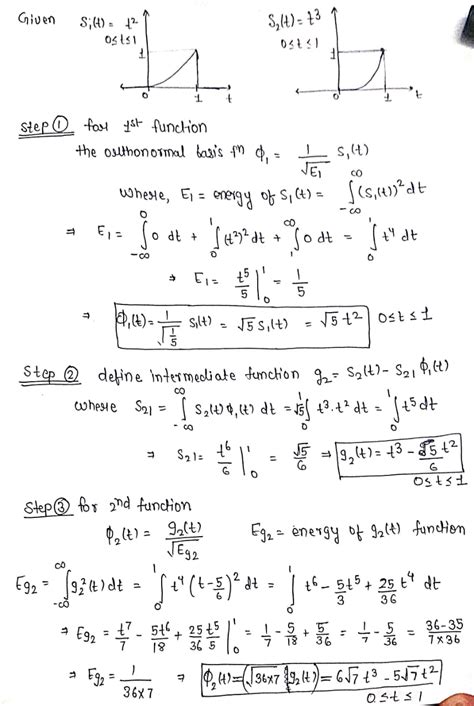 Given S₁(t) = t² S₂(t) = t³
0≤t≤1 0≤t≤1
1 1
0 1 t 0 1 t
Step ① for 1st function
the orthonormal basis fn ϕ₁ = 1/√E₁ S₁(t)
where, E₁ = energy of S₁(t) = ∫_{-∞}^{∞} (S₁(t))² dt
⇒ E₁ = ∫_{-∞}^{0} 0 dt + ∫_0^1 (t²)² dt + ∫_1^∞ 0 dt = ∫_0^1 t⁴ dt
⇒ E₁ = t⁵/5 |_0^1 = 1/5
⇒ ϕ₁(t) = 1/√(1/5) S₁(t) = √5 S₁(t) = √5 t² 0≤t≤1
Step ② define intermediate function g₂ = S₂(t) - S₂₁ ϕ₁(t)
where S₂₁ = ∫_{-∞}^{∞} S₂(t) ϕ₁(t) dt = √5 ∫_0^1 t³.t² dt = ∫_0^1 t⁵ dt
⇒ S₂₁ = t⁶/6 |_0^1 = √5/6 ⇒ g₂(t) = t³ - 5 t²/6
0≤t≤1
Step ③ for 2nd function
ϕ₂(t) = g₂(t)/√Eg₂ Eg₂ = energy of g₂(t) function
Eg₂ = ∫_{-∞}^{∞} g₂²(t) dt = ∫_0^1 t⁴ (t - 5/6)² dt = ∫_0^1 t⁶ - 5/3 t⁵ + 25/36 t⁴ dt
⇒ Eg₂ = t⁷/7 - 5t⁶/18 + 25/36 t⁵/5 |_0^1 = 1/7 - 5/18 + 5/36 = 1/7 - 5/36 = 36-35/7×36
⇒ Eg₂ = 1/36×7 ⇒ ϕ₂(t) = (√36×7) g₂(t) = 6√7 t³ - 5√7 t²
0≤t≤1